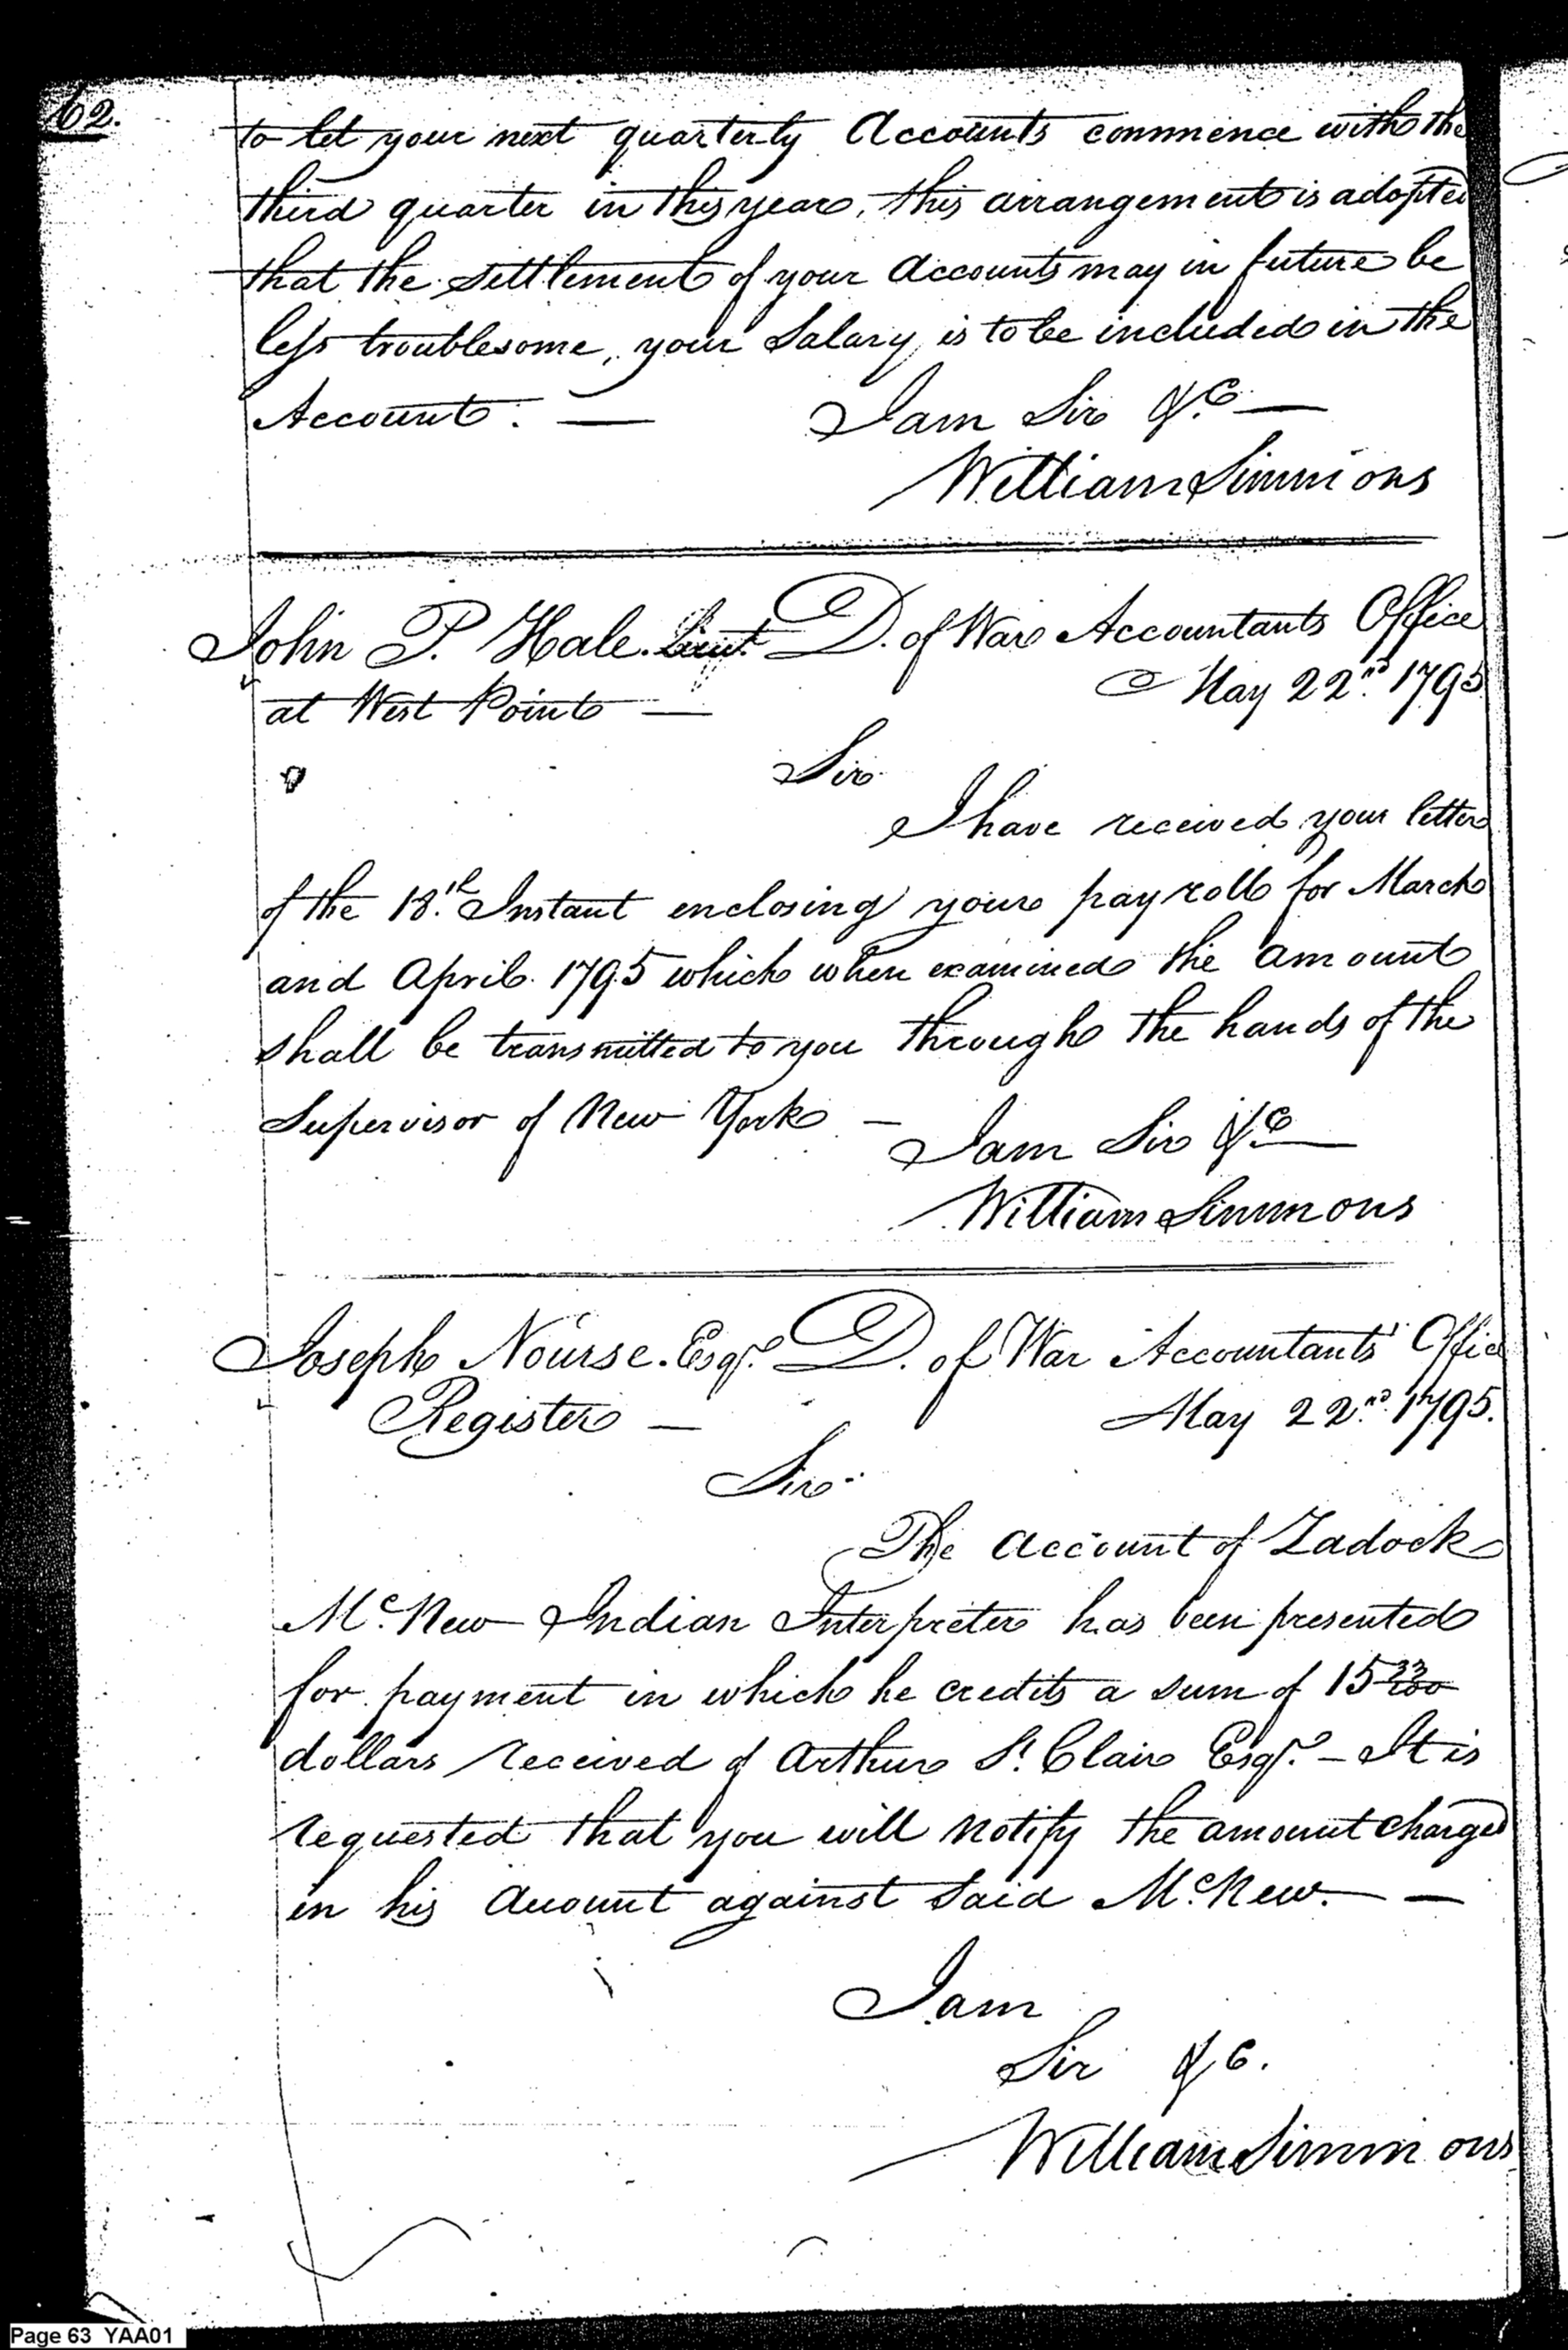 62.
to let your next quarterly Accounts commence with the
third quarter in this year, this arrangement is adopted
that the settlement of your Accounts may in future be
less troublesome, your Salary is to be included in the
Account. —
I am Sir &c —
William Simmons
John P. Hale. Lieut. D. of War Accountants Office
at West Point — May 22nd 1795
Sir
I have received your letter
of the 18th Instant enclosing your pay roll for March
and April 1795 which when examined the amount
shall be transmitted to you through the hands of the
Supervisor of New York —
I am Sir &c —
William Simmons
Joseph Nourse. Esqr. D. of War Accountants' Office
Register — May 22nd 1795.
Sir
The Account of Zadock
McNew Indian Interpreter has been presented
for payment in which he credits a sum of 15 33/100
dollars received of Arthur St. Clair Esqr. – It is
requested that you will notify the amount charged
in his Account against said McNew. —
I am
Sir &c.
William Simmons
Page 63 YAA01